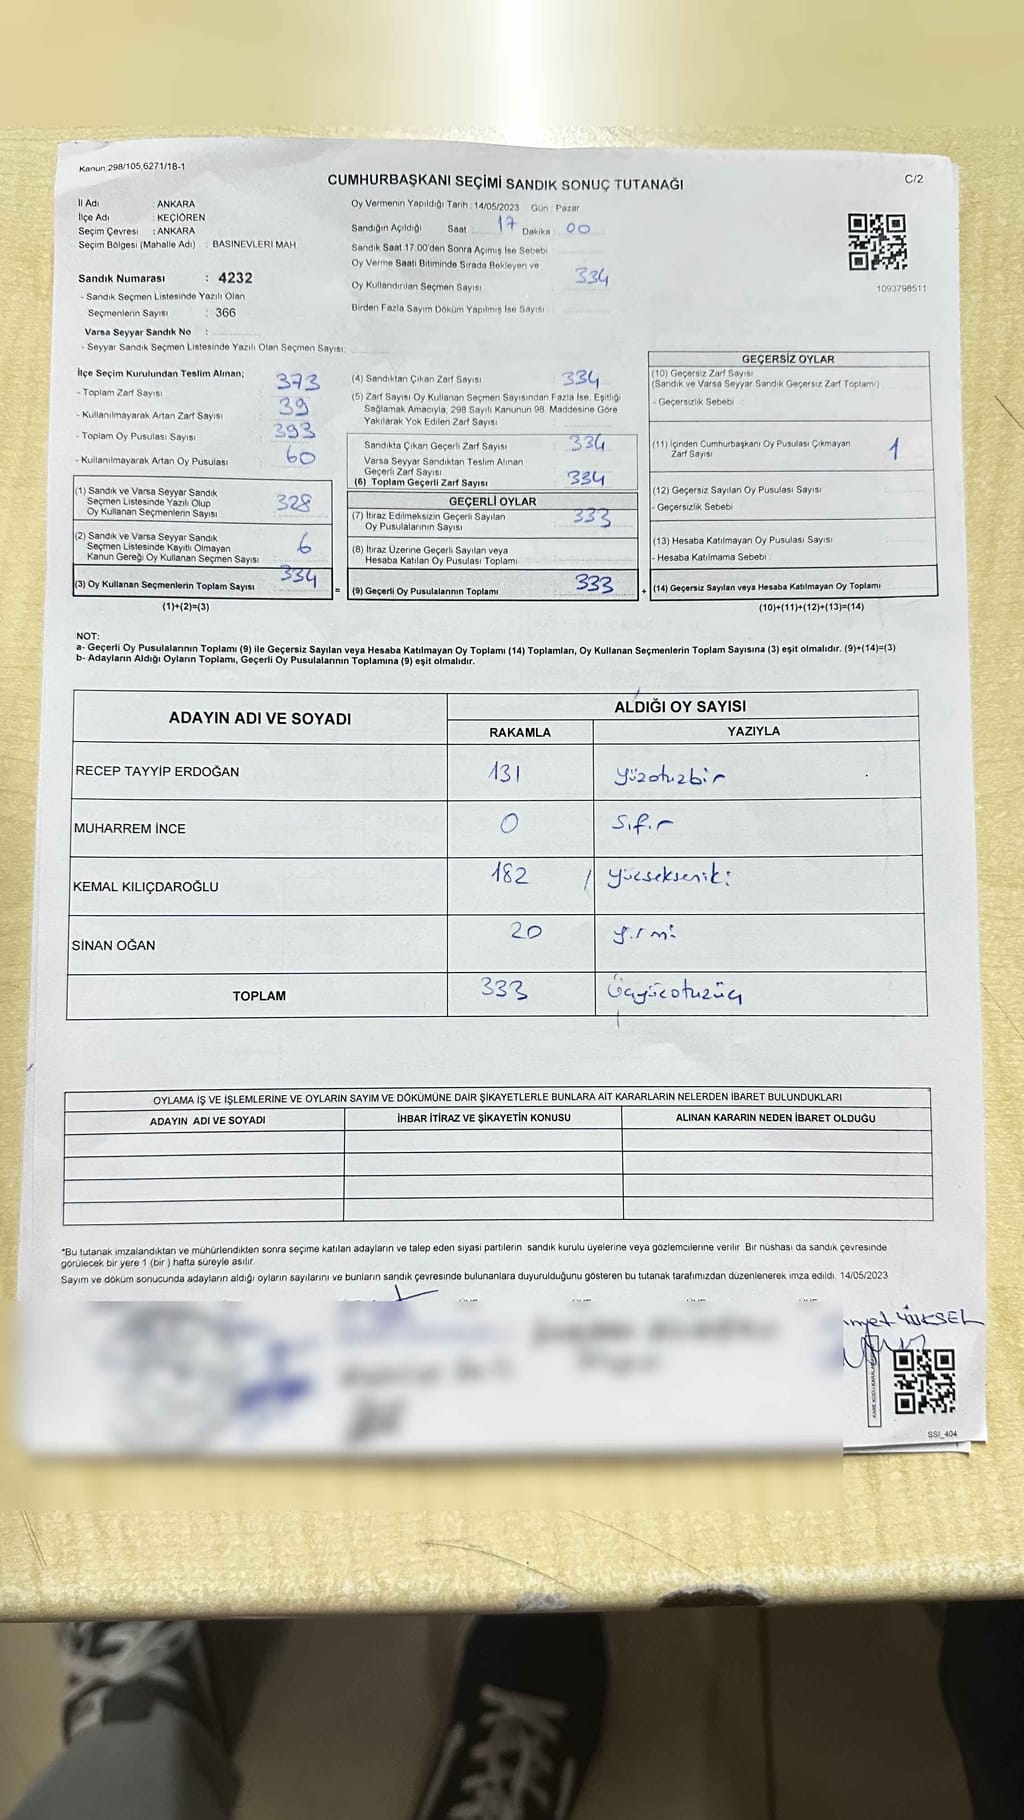 Kanun 298/105,6271/18-1
CUMHURBAŞKANI SEÇİMİ SANDIK SONUÇ TUTANAĞI
C/2
İl Adı : ANKARA
İlçe Adı : KEÇİÖREN
Seçim Çevresi : ANKARA
Seçim Bölgesi (Mahalle Adı) : BASINEVLERİ MAH
Sandık Numarası : 4232
- Sandık Seçmen Listesinde Yazılı Olan
Seçmenlerin Sayısı : 366
Varsa Seyyar Sandık No :
- Seyyar Sandık Seçmen Listesinde Yazılı Olan Seçmen Sayısı:
Oy Vermenin Yapıldığı Tarih : 14/05/2023 Gün : Pazar
Sandığın Açıldığı Saat 17 Dakika : 00
Sandık Saat 17.00'den Sonra Açılmış İse Sebebi
Oy Verme Saati Bitiminde Sırada Bekleyen ve
Oy Kullandırılan Seçmen Sayısı 334
Birden Fazla Sayım Döküm Yapılmış İse Sayısı
1093798511
İlçe Seçim Kurulundan Teslim Alınan;
- Toplam Zarf Sayısı 373
- Kullanılmayarak Artan Zarf Sayısı 39
- Toplam Oy Pusulası Sayısı 393
- Kullanılmayarak Artan Oy Pusulası 60
(1) Sandık ve Varsa Seyyar Sandık
Seçmen Listesinde Yazılı Olup
Oy Kullanan Seçmenlerin Sayısı 328
(2) Sandık ve Varsa Seyyar Sandık
Seçmen Listesinde Kayıtlı Olmayan
Kanun Gereği Oy Kullanan Seçmen Sayısı 6
(3) Oy Kullanan Seçmenlerin Toplam Sayısı 334
(1)+(2)=(3)
=
(4) Sandıktan Çıkan Zarf Sayısı 334
(5) Zarf Sayısı Oy Kullanan Seçmen Sayısından Fazla İse, Eşitliği
Sağlamak Amacıyla, 298 Sayılı Kanunun 98. Maddesine Göre
Yakılarak Yok Edilen Zarf Sayısı
Sandıkta Çıkan Geçerli Zarf Sayısı 334
Varsa Seyyar Sandıktan Teslim Alınan
Geçerli Zarf Sayısı
(6) Toplam Geçerli Zarf Sayısı 334
GEÇERLİ OYLAR
(7) İtiraz Edilmeksizin Geçerli Sayılan
Oy Pusulalarının Sayısı 333
(8) İtiraz Üzerine Geçerli Sayılan veya
Hesaba Katılan Oy Pusulası Toplamı
(9) Geçerli Oy Pusulalarının Toplamı 333
+
GEÇERSİZ OYLAR
(10) Geçersiz Zarf Sayısı
(Sandık ve Varsa Seyyar Sandık Geçersiz Zarf Toplamı)
- Geçersizlik Sebebi :
(11) İçinden Cumhurbaşkanı Oy Pusulası Çıkmayan
Zarf Sayısı 1
(12) Geçersiz Sayılan Oy Pusulası Sayısı
- Geçersizlik Sebebi
(13) Hesaba Katılmayan Oy Pusulası Sayısı
- Hesaba Katılmama Sebebi
(14) Geçersiz Sayılan veya Hesaba Katılmayan Oy Toplamı
(10)+(11)+(12)+(13)=(14)
NOT:
a- Geçerli Oy Pusulalarının Toplamı (9) ile Geçersiz Sayılan veya Hesaba Katılmayan Oy Toplamı (14) Toplamları, Oy Kullanan Seçmenlerin Toplam Sayısına (3) eşit olmalıdır. (9)+(14)=(3)
b- Adayların Aldığı Oyların Toplamı, Geçerli Oy Pusulalarının Toplamına (9) eşit olmalıdır.
ADAYIN ADI VE SOYADI ALDIĞI OY SAYISI
RAKAMLA YAZIYLA
RECEP TAYYİP ERDOĞAN 131 yüzotuzbir
MUHARREM İNCE 0 sıfır
KEMAL KILIÇDAROĞLU 182 yüzsekseniki
SİNAN OĞAN 20 yirmi
TOPLAM 333 Üçyüzotuzüç
OYLAMA İŞ VE İŞLEMLERİNE VE OYLARIN SAYIM VE DÖKÜMÜNE DAİR ŞİKAYETLERLE BUNLARA AİT KARARLARIN NELERDEN İBARET BULUNDUKLARI
ADAYIN ADI VE SOYADI İHBAR İTİRAZ VE ŞİKAYETİN KONUSU ALINAN KARARIN NEDEN İBARET OLDUĞU
*Bu tutanak imzalandıktan ve mühürlendikten sonra seçime katılan adayların ve talep eden siyasi partilerin sandık kurulu üyelerine veya gözlemcilerine verilir. Bir nüshası da sandık çevresinde
görülecek bir yere 1 (bir) hafta süreyle asılır.
Sayım ve döküm sonucunda adayların aldığı oyların sayılarını ve bunların sandık çevresinde bulunanlara duyurulduğunu gösteren bu tutanak tarafımızdan düzenlenerek imza edildi. 14/05/2023
YÜKSEL
SSI_404